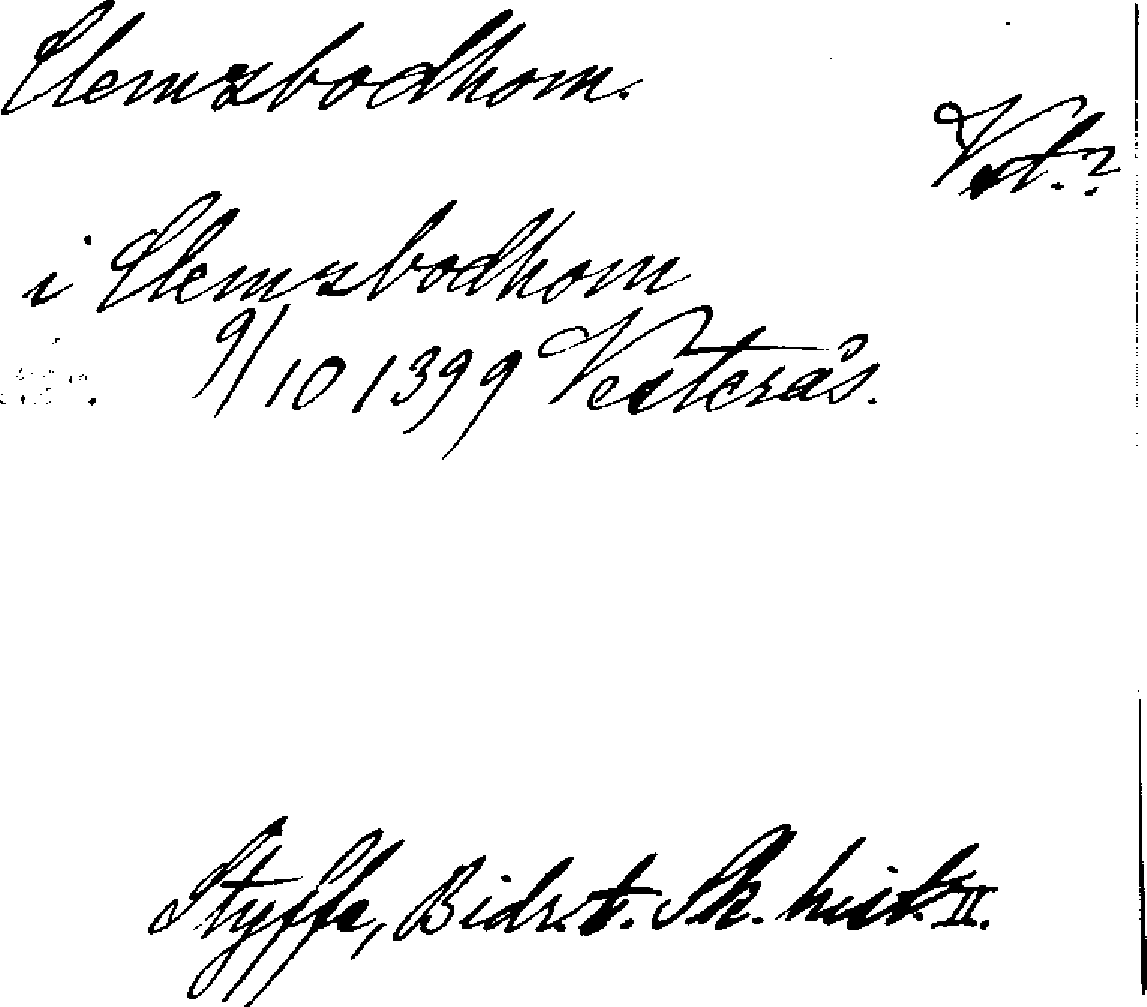 Clemszbodhom.
Vst.?
i Clemszbodhom
9/10 1399 Vesterås.
Styffe, Bidr. t. Sk. hist. II.